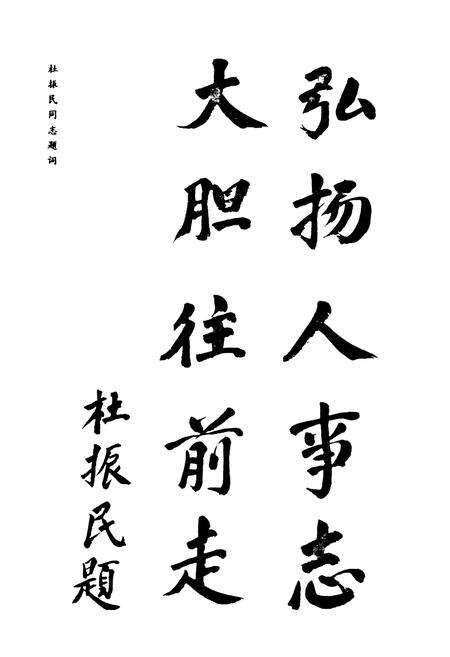 弘扬人事志
大胆往前走
杜振民题
杜振民同志题词